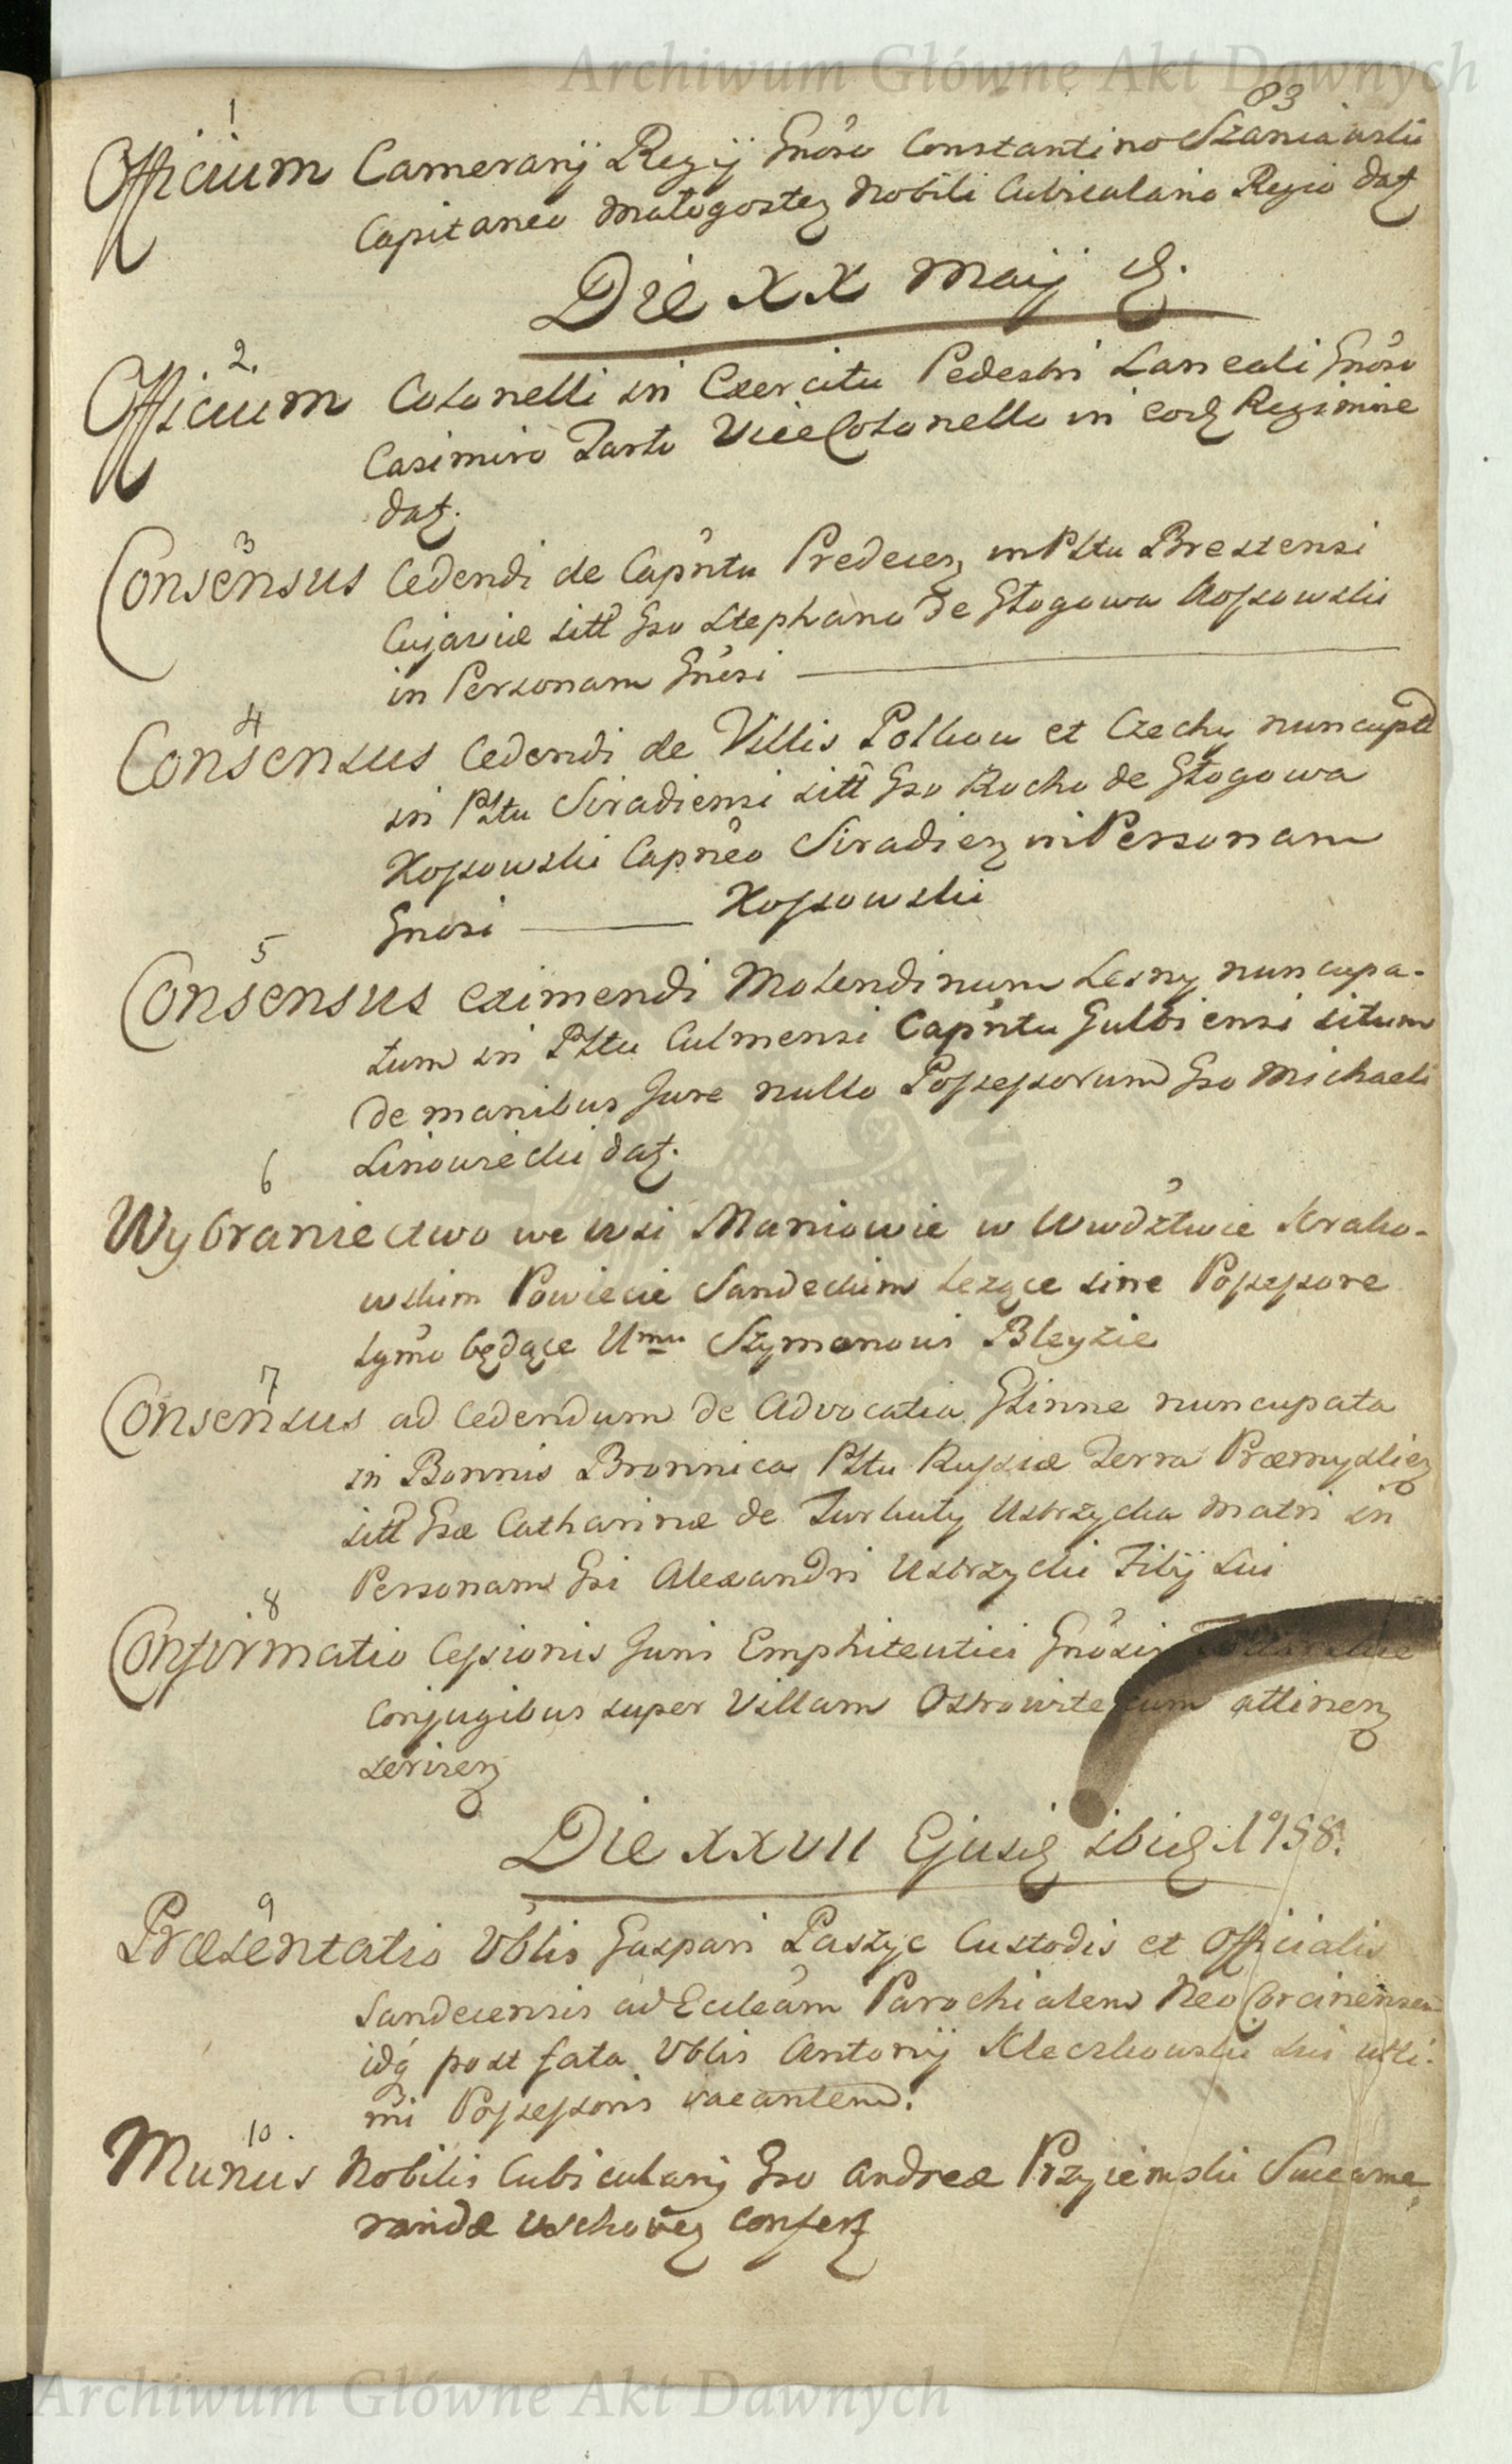 Archiwum Główne Akt Dawnych
83
1
Officium Camerarij Regij Gnoso Constantino Szaniawski
Capitaneo Małogostez Nobili Cubiculario Regio datz
Die XX Maij
2.
Officium Colonelli in Exercitu Pedestri Laneali Gnoso
Casimiro Tarło Vice Colonello in eodz Regimine
datz.
3
Consensus Cedendi de Capntu Predecez in Pltu Brestensi
Cujaviæ sitt Gso Stephano de Głogowa Kossowski
in Personam Gnosi
4
Consensus Cedendi de Villis Polkow et Czechy nuncupt
in Pltu Siradiensi sitt Gso Rocho de Głogowa
Kossowski Capneo Siradiez in Personam
Gnosi ——— Kossowski
5
Consensus eximendi Molendinum Lesny nuncupa-
tum in Pltu Culmensi Capntu Gulbiensi situm
de manibus Jure nullo Possessorum Gso Michaeli
Liniowiecki datz.
6
Wybraniectwo we wsi Maniowie w Wwdztwie Krako-
wskim Powiecie Sandeckim lezące sine Possessore
lgmo będące Umu Szymonowi Bleyzie
7
Consensus ad Cedendum de Advocatia Glinne nuncupata
in Bonnis Bronnica Pltu Russiæ Terra Præmysliez
sitt Gsæ Catharinæ de Turkuły Ustrzycka Matri in
Personam Gsi Alexandri Ustrzycki Filij Sui
8
Confirmatio Cessionis Juris Emphiteutici Gnosis
Conjugibus super Villam Ostrowite cum attinenz
servienz
Die XXVII Ejusdz ibidz 1758.
9
Præsentatio Vblis Gaspari Paszyc Custodis et Officialis
Sandecensis ad Eccleam Parochialem Neo Corcinensem
idq post fata Vblis Antonij Kleczkowski sui ulti-
mi Possessoris vacantem.
10.
Munus Nobilis Cubicularij Gso Andreæ Przyiemski Succame
raridæ Wschovez Confertz
Archiwum Główne Akt Dawnych